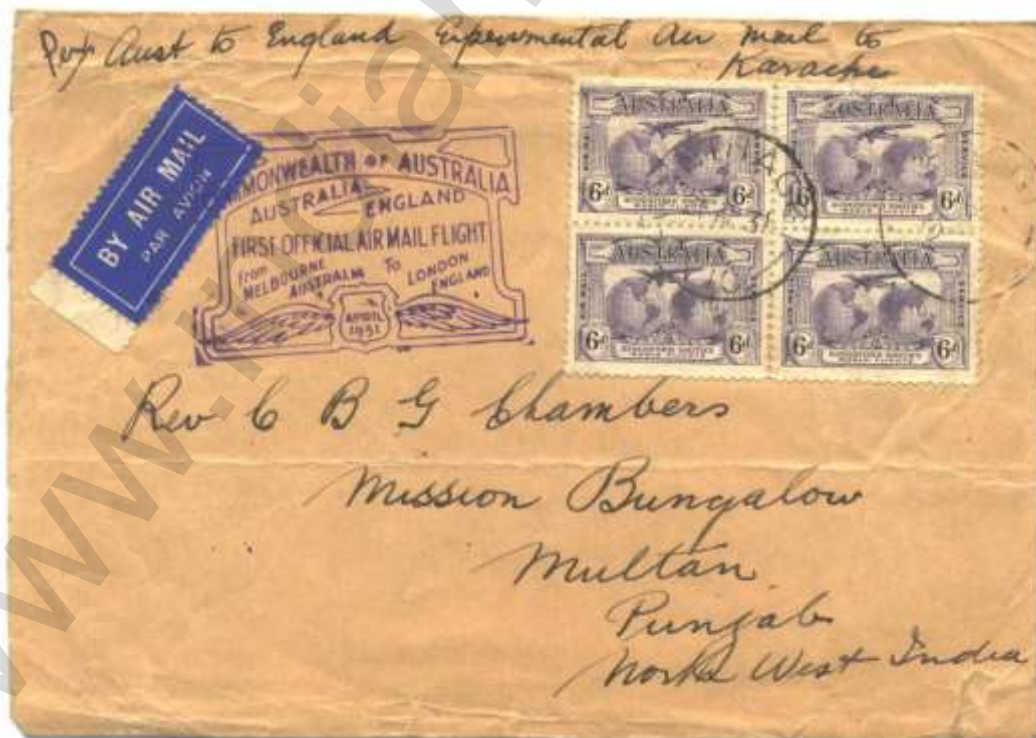 Per Aust to England Experimental Air Mail to
Karachi
BY AIR MAIL
PAR AVION
COMMONWEALTH OF AUSTRALIA
AUSTRALIA
ENGLAND
FIRST OFFICIAL AIR MAIL FLIGHT
From MELBOURNE AUSTRALIA To LONDON ENGLAND
APRIL
1931
AUSTRALIA
6d 6d
AUSTRALIA
6d
AUSTRALIA
6d 6d
AUSTRALIA
6d 6d
Rev C B G Chambers
Mission Bungalow
Multan
Punjab
North West India